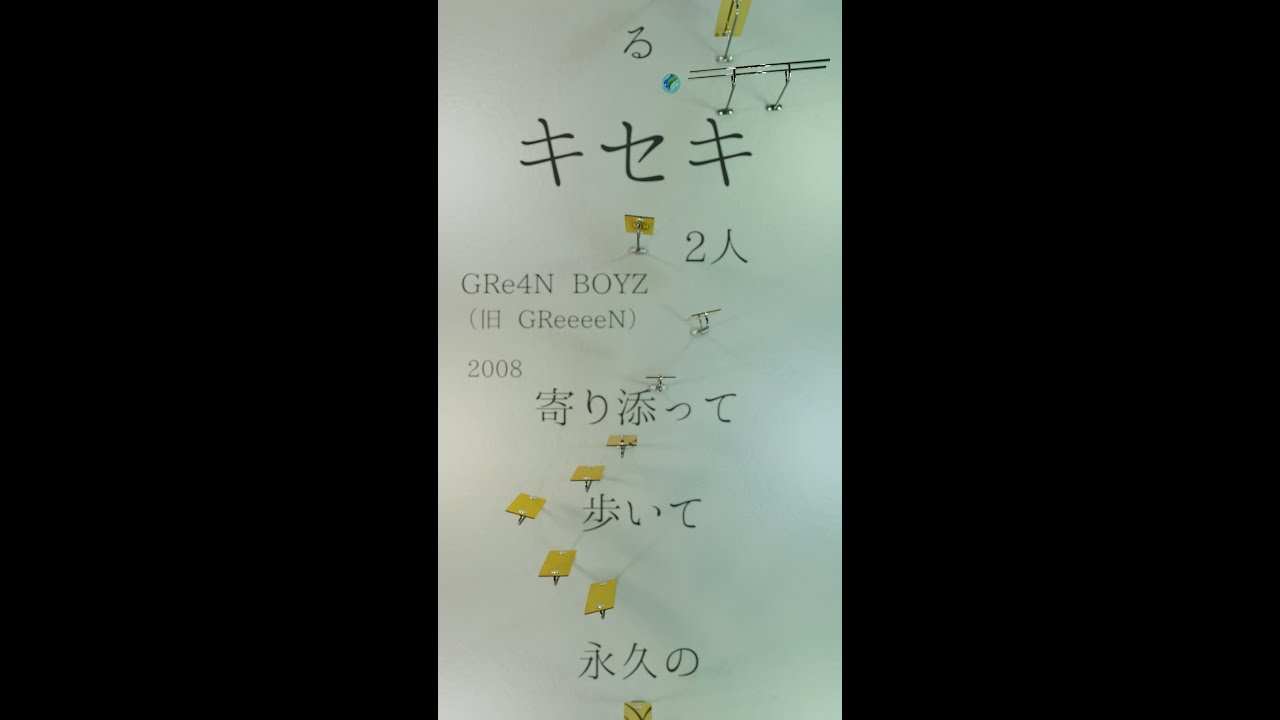 る
キセキ
2人
GRe4N BOYZ
（旧 GReeeeN）
2008
寄り添って
歩いて
永久の